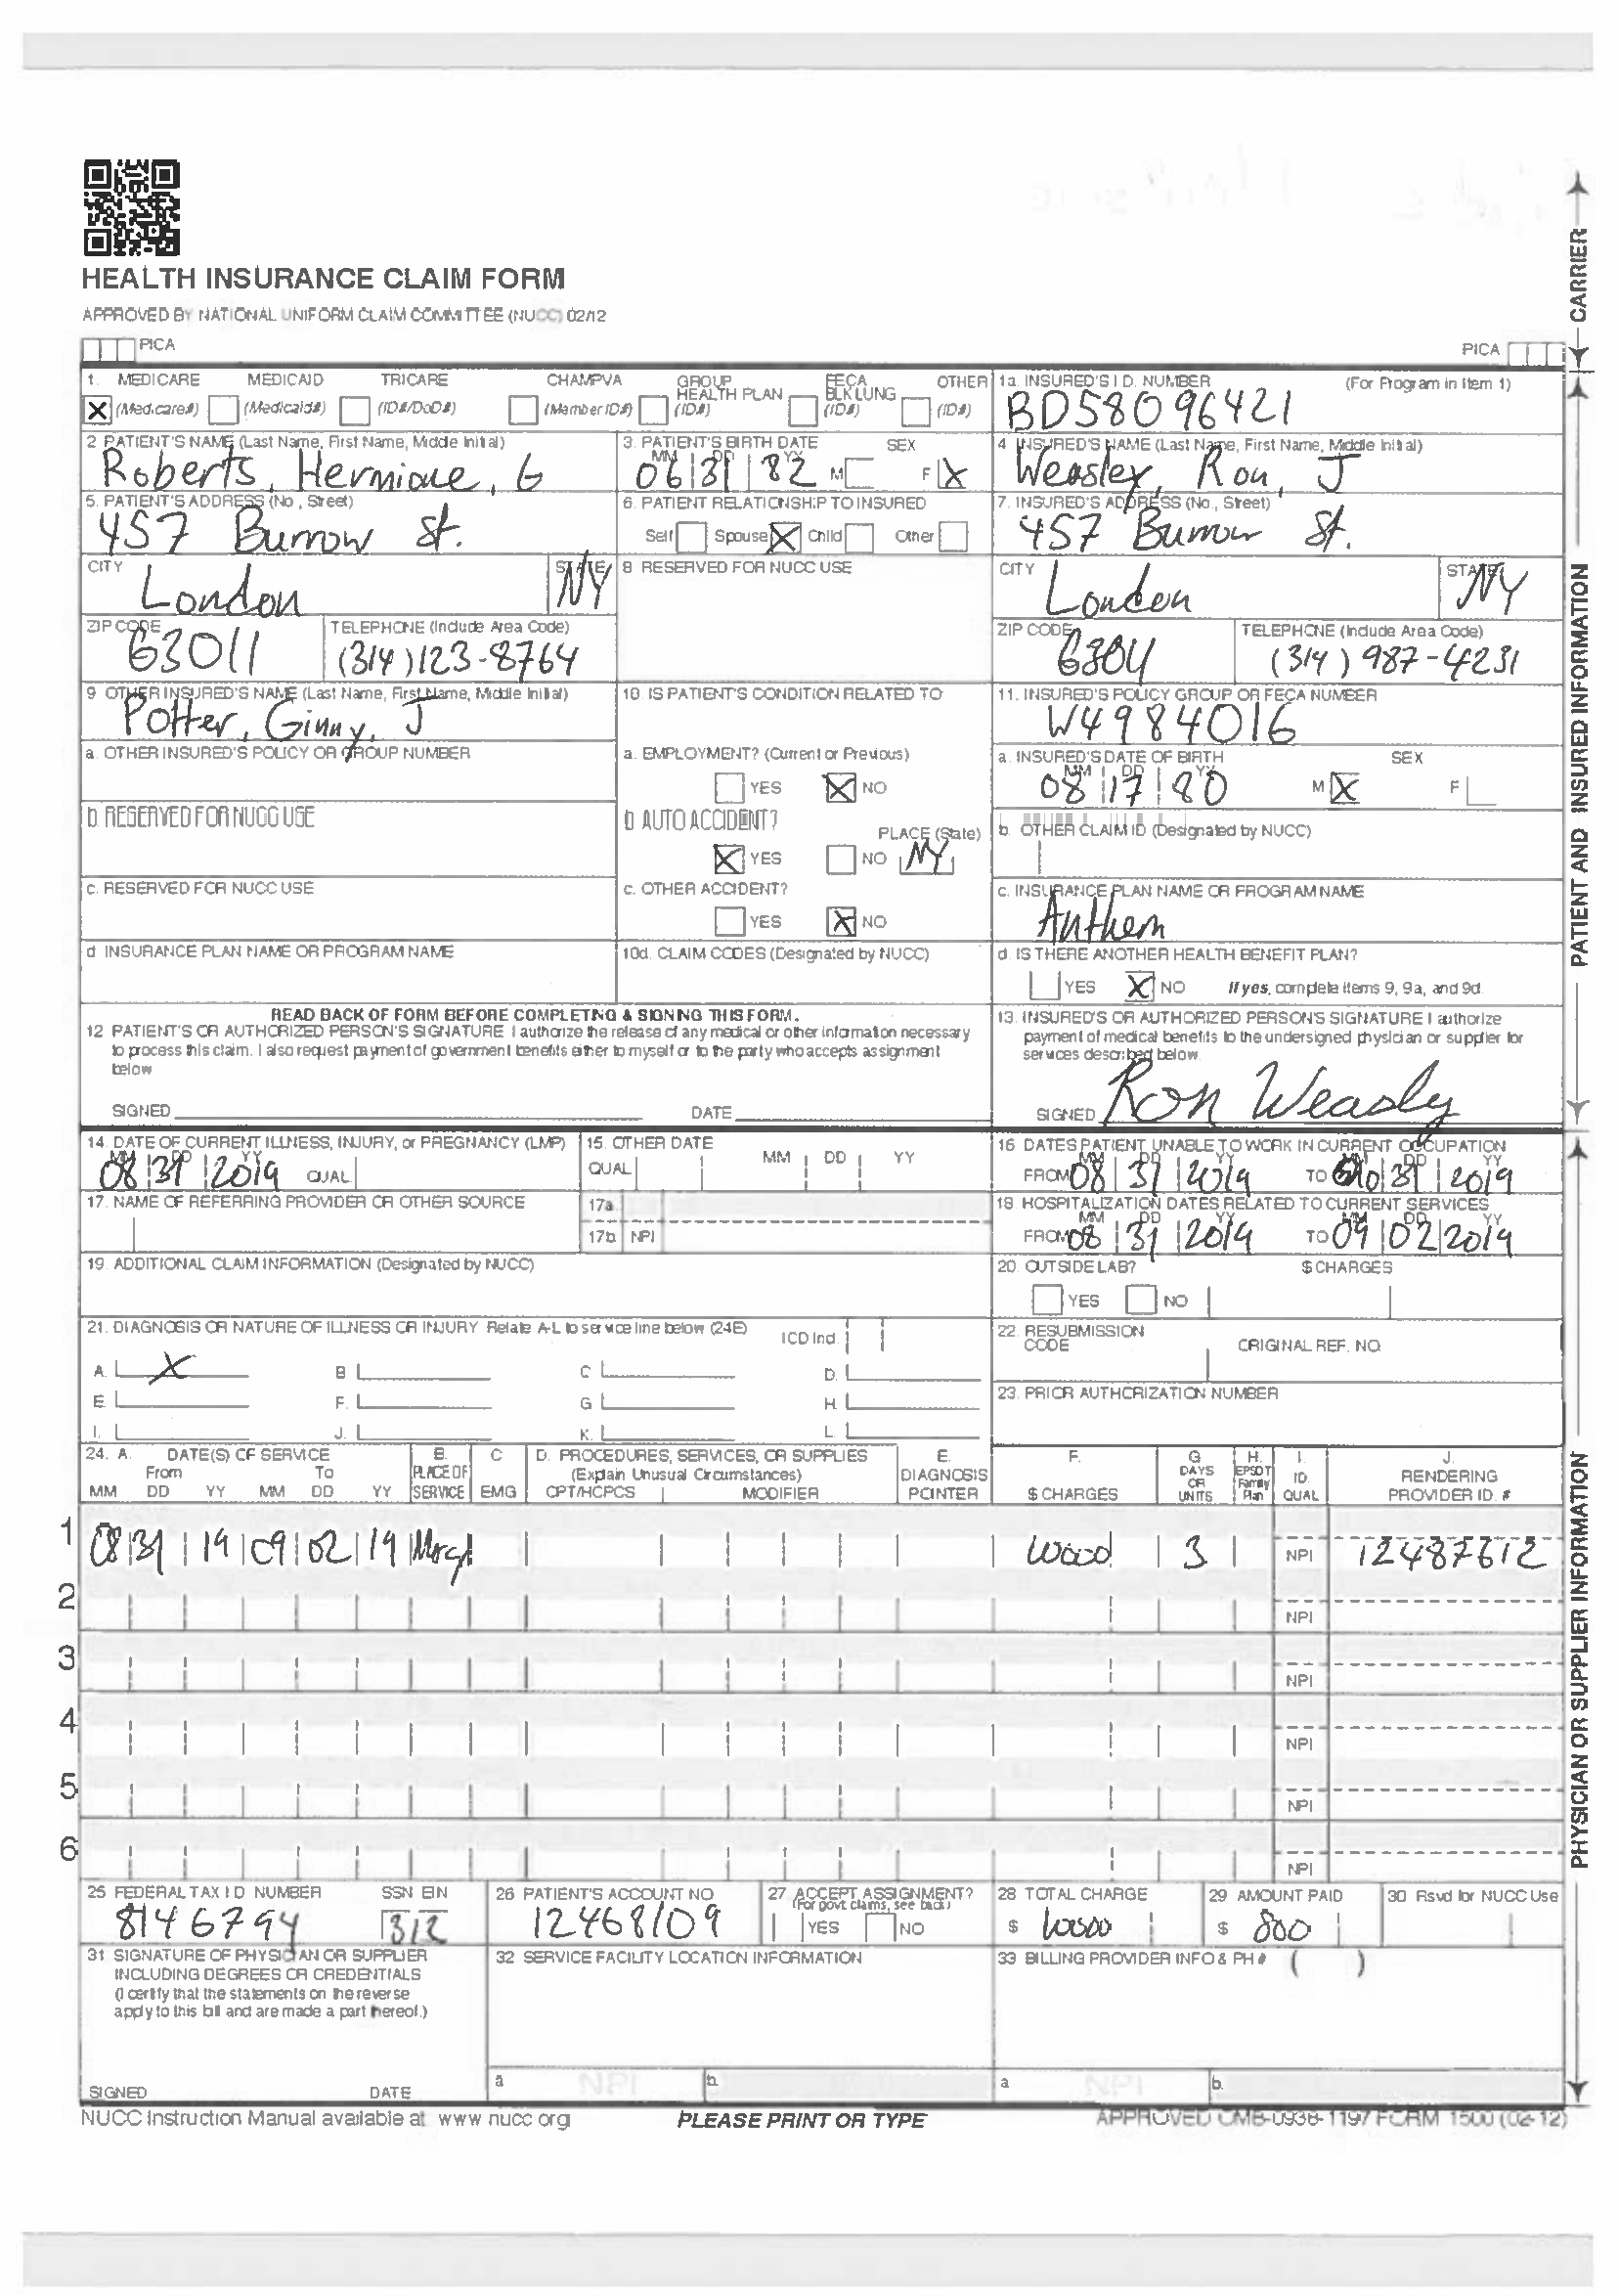 HEALTH INSURANCE CLAIM FORM
APPROVED BY NATIONAL UNIFORM CLAIM COMMITTEE (NUCC) 02/12
PICA
PICA
1. MEDICARE MEDICAID TRICARE CHAMPVA GROUP HEALTH PLAN FECA BLK LUNG OTHER
X (Medicare#) (Medicaid#) (ID#/DoD#) (Member ID#) (ID#) (ID#) (ID#)
1a. INSURED'S I.D. NUMBER (For Program in Item 1)
BD58096421
2 PATIENT'S NAME (Last Name, First Name, Middle Initial)
Roberts, Hermione, G
3. PATIENT'S BIRTH DATE SEX
MM DD YY
06 31 82 M F X
4 INSURED'S NAME (Last Name, First Name, Middle Initial)
Weasley, Ron, J
5. PATIENT'S ADDRESS (No., Street)
457 Burrow St.
6. PATIENT RELATIONSHIP TO INSURED
Self Spouse X Child Other
7. INSURED'S ADDRESS (No., Street)
457 Burrow St.
CITY STATE
London NY
8 RESERVED FOR NUCC USE
CITY STATE
London NY
ZIP CODE TELEPHONE (Include Area Code)
63011 (314) 123-8764
ZIP CODE TELEPHONE (Include Area Code)
(314) 987-4231
9 OTHER INSURED'S NAME (Last Name, First Name, Middle Initial)
Potter, Ginny, J
10 IS PATIENT'S CONDITION RELATED TO
11. INSURED'S POLICY GROUP OR FECA NUMBER
W4984016
a. OTHER INSURED'S POLICY OR GROUP NUMBER
a. EMPLOYMENT? (Current or Previous)
YES X NO
a. INSURED'S DATE OF BIRTH SEX
MM DD YY
08 17 80 M X F
b. RESERVED FOR NUCC USE
b AUTO ACCIDENT? PLACE (State)
X YES NO NY
b. OTHER CLAIM ID (Designated by NUCC)
c. RESERVED FOR NUCC USE
c. OTHER ACCIDENT?
YES X NO
c. INSURANCE PLAN NAME OR PROGRAM NAME
Anthem
d INSURANCE PLAN NAME OR PROGRAM NAME
10d. CLAIM CODES (Designated by NUCC)
d. IS THERE ANOTHER HEALTH BENEFIT PLAN?
YES X NO If yes, complete items 9, 9a, and 9d.
READ BACK OF FORM BEFORE COMPLETING & SIGNING THIS FORM.
12 PATIENT'S OR AUTHORIZED PERSON'S SIGNATURE I authorize the release of any medical or other information necessary
to process this claim. I also request payment of government benefits either to myself or to the party who accepts assignment
below
SIGNED DATE
13. INSURED'S OR AUTHORIZED PERSON'S SIGNATURE I authorize
payment of medical benefits to the undersigned physician or supplier for
services described below.
SIGNED Ron Weasly
14. DATE OF CURRENT ILLNESS, INJURY, or PREGNANCY (LMP)
MM DD YY
08 31 2019 QUAL.
15. OTHER DATE
QUAL. MM DD YY
16 DATES PATIENT UNABLE TO WORK IN CURRENT OCCUPATION
MM DD YY MM DD YY
FROM 08 31 2019 TO 10 31 2019
17. NAME OF REFERRING PROVIDER OR OTHER SOURCE
17a
17b NPI
18. HOSPITALIZATION DATES RELATED TO CURRENT SERVICES
MM DD YY MM DD YY
FROM 08 31 2019 TO 09 02 2019
19. ADDITIONAL CLAIM INFORMATION (Designated by NUCC)
20. OUTSIDE LAB? $ CHARGES
YES NO
21. DIAGNOSIS OR NATURE OF ILLNESS OR INJURY Relate A-L to service line below (24E) ICD Ind
A. X B C D.
E F. G H.
I. J. K. L.
22. RESUBMISSION CODE ORIGINAL REF. NO.
23. PRIOR AUTHORIZATION NUMBER
24. A. DATE(S) OF SERVICE B. C D. PROCEDURES, SERVICES, OR SUPPLIES E. F. G H. I. J.
From To PLACE OF SERVICE EMG (Explain Unusual Circumstances) DIAGNOSIS POINTER $ CHARGES DAYS OR UNITS EPSDT Family Plan ID. QUAL RENDERING PROVIDER ID. #
MM DD YY MM DD YY CPT/HCPCS MODIFIER
1 08 31 19 09 02 19 3 NPI 12487612
2 NPI
3 NPI
4 NPI
5 NPI
6 NPI
25 FEDERAL TAX I.D. NUMBER SSN EIN
8146794 312
26 PATIENT'S ACCOUNT NO
12468109
27 ACCEPT ASSIGNMENT?
(For govt. claims, see back)
YES NO
28 TOTAL CHARGE
$
29 AMOUNT PAID
$ 800
30 Rsvd for NUCC Use
31 SIGNATURE OF PHYSICIAN OR SUPPLIER
INCLUDING DEGREES OR CREDENTIALS
(I certify that the statements on the reverse
apply to this bill and are made a part thereof.)
SIGNED DATE
32 SERVICE FACILITY LOCATION INFORMATION
a NPI b.
33 BILLING PROVIDER INFO & PH # ( )
a NPI b.
NUCC Instruction Manual available at: www.nucc.org
PLEASE PRINT OR TYPE
APPROVED OMB-0938-1197 FORM 1500 (02-12)
CARRIER
PATIENT AND INSURED INFORMATION
PHYSICIAN OR SUPPLIER INFORMATION